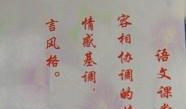 语文课堂
容相协调的
情感基调，
言风格。